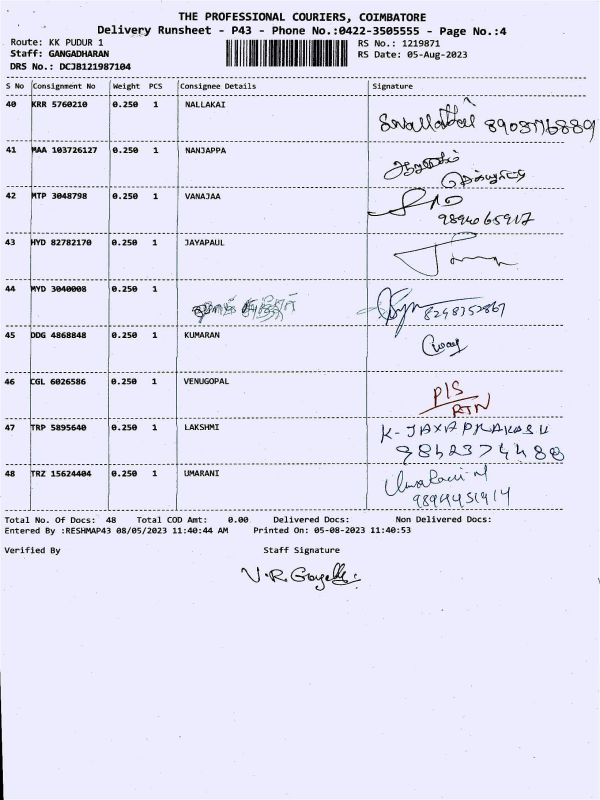 THE PROFESSIONAL COURIERS, COIMBATORE
Delivery Runsheet - P43 - Phone No.:0422-3505555 - Page No.:4
Route: KK PUDUR 1 RS No.: 1219871
Staff: GANGADHARAN RS Date: 05-Aug-2023
DRS No.: DCJB121987104
S No Consignment No Weight PCS Consignee Details Signature
40 KRR 5760210 0.250 1 NALLAKAI
41 MAA 103726127 0.250 1 NANJAPPA
42 MTP 3048798 0.250 1 VANAJAA
43 HYD 82782170 0.250 1 JAYAPAUL
44 MYD 3040008 0.250 1
45 DDG 4868848 0.250 1 KUMARAN
46 CGL 6026586 0.250 1 VENUGOPAL
RTN
47 TRP 5895640 0.250 1 LAKSHMI K-JAYAPRAKASH
9842374488
48 TRZ 15624404 0.250 1 UMARANI
Total No. Of Docs: 48 Total COD Amt: 0.00 Delivered Docs: Non Delivered Docs:
Entered By :RESHMAP43 08/05/2023 11:40:44 AM Printed On: 05-08-2023 11:40:53
Verified By Staff Signature